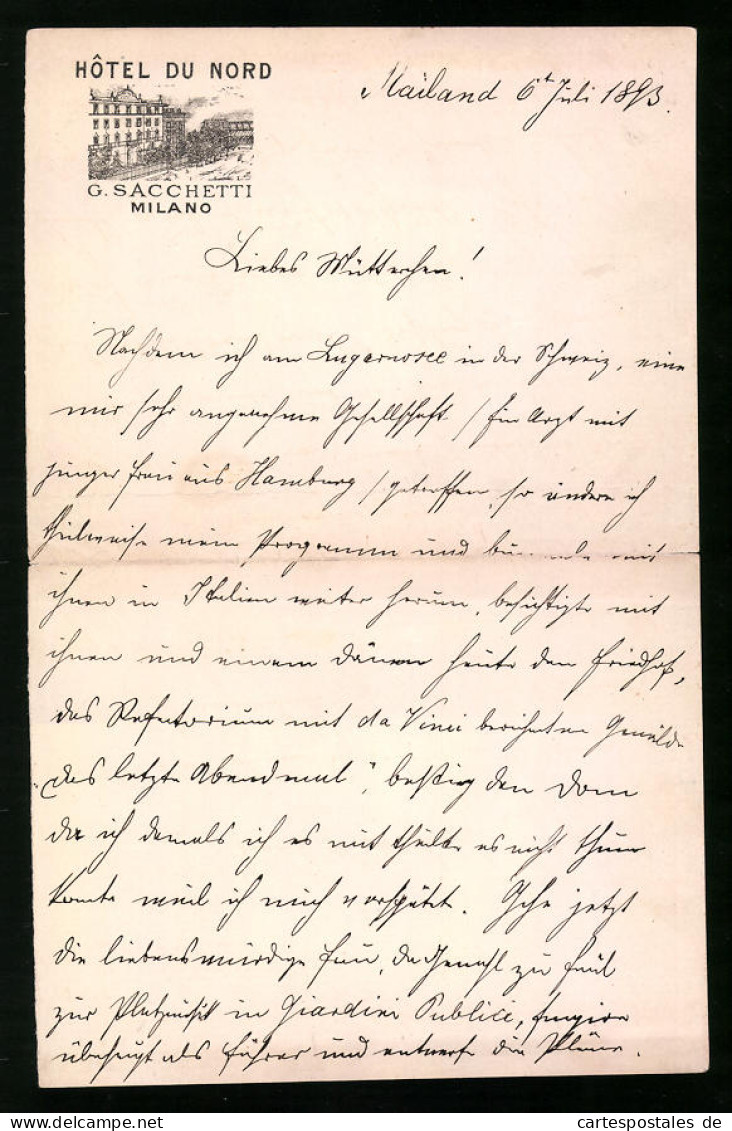 HÔTEL DU NORD
G. SACCHETTI
MILANO
Mailand 6t Juli 1893.
Liebes Mütterchen!
Nachdem ich am Luganosee in der Schweiz, eine
mir sehr angenehme Gesellschaft / Ein Arzt mit
junger Frau aus Hamburg / getroffen, so ändere ich
theilweise mein Programm und mit
ihnen in Italien weiter herum, besichtigte mit
ihnen und einem Dänen heute den Friedhof,
das Refectorium mit da Vinci berühmten Gemälde
„das letzte Abendmal“, bestieg den Dom
da ich damals ich es mit theilte es nicht thun
konnte weil ich mich verspätet. Gehe jetzt
die liebenswürdige Frau, da Gemahl zu faul
zur Platzmusik in Giardini Publici, fungire
überhaupt als Führer und entwerfe die Pläne.
cartespostales de